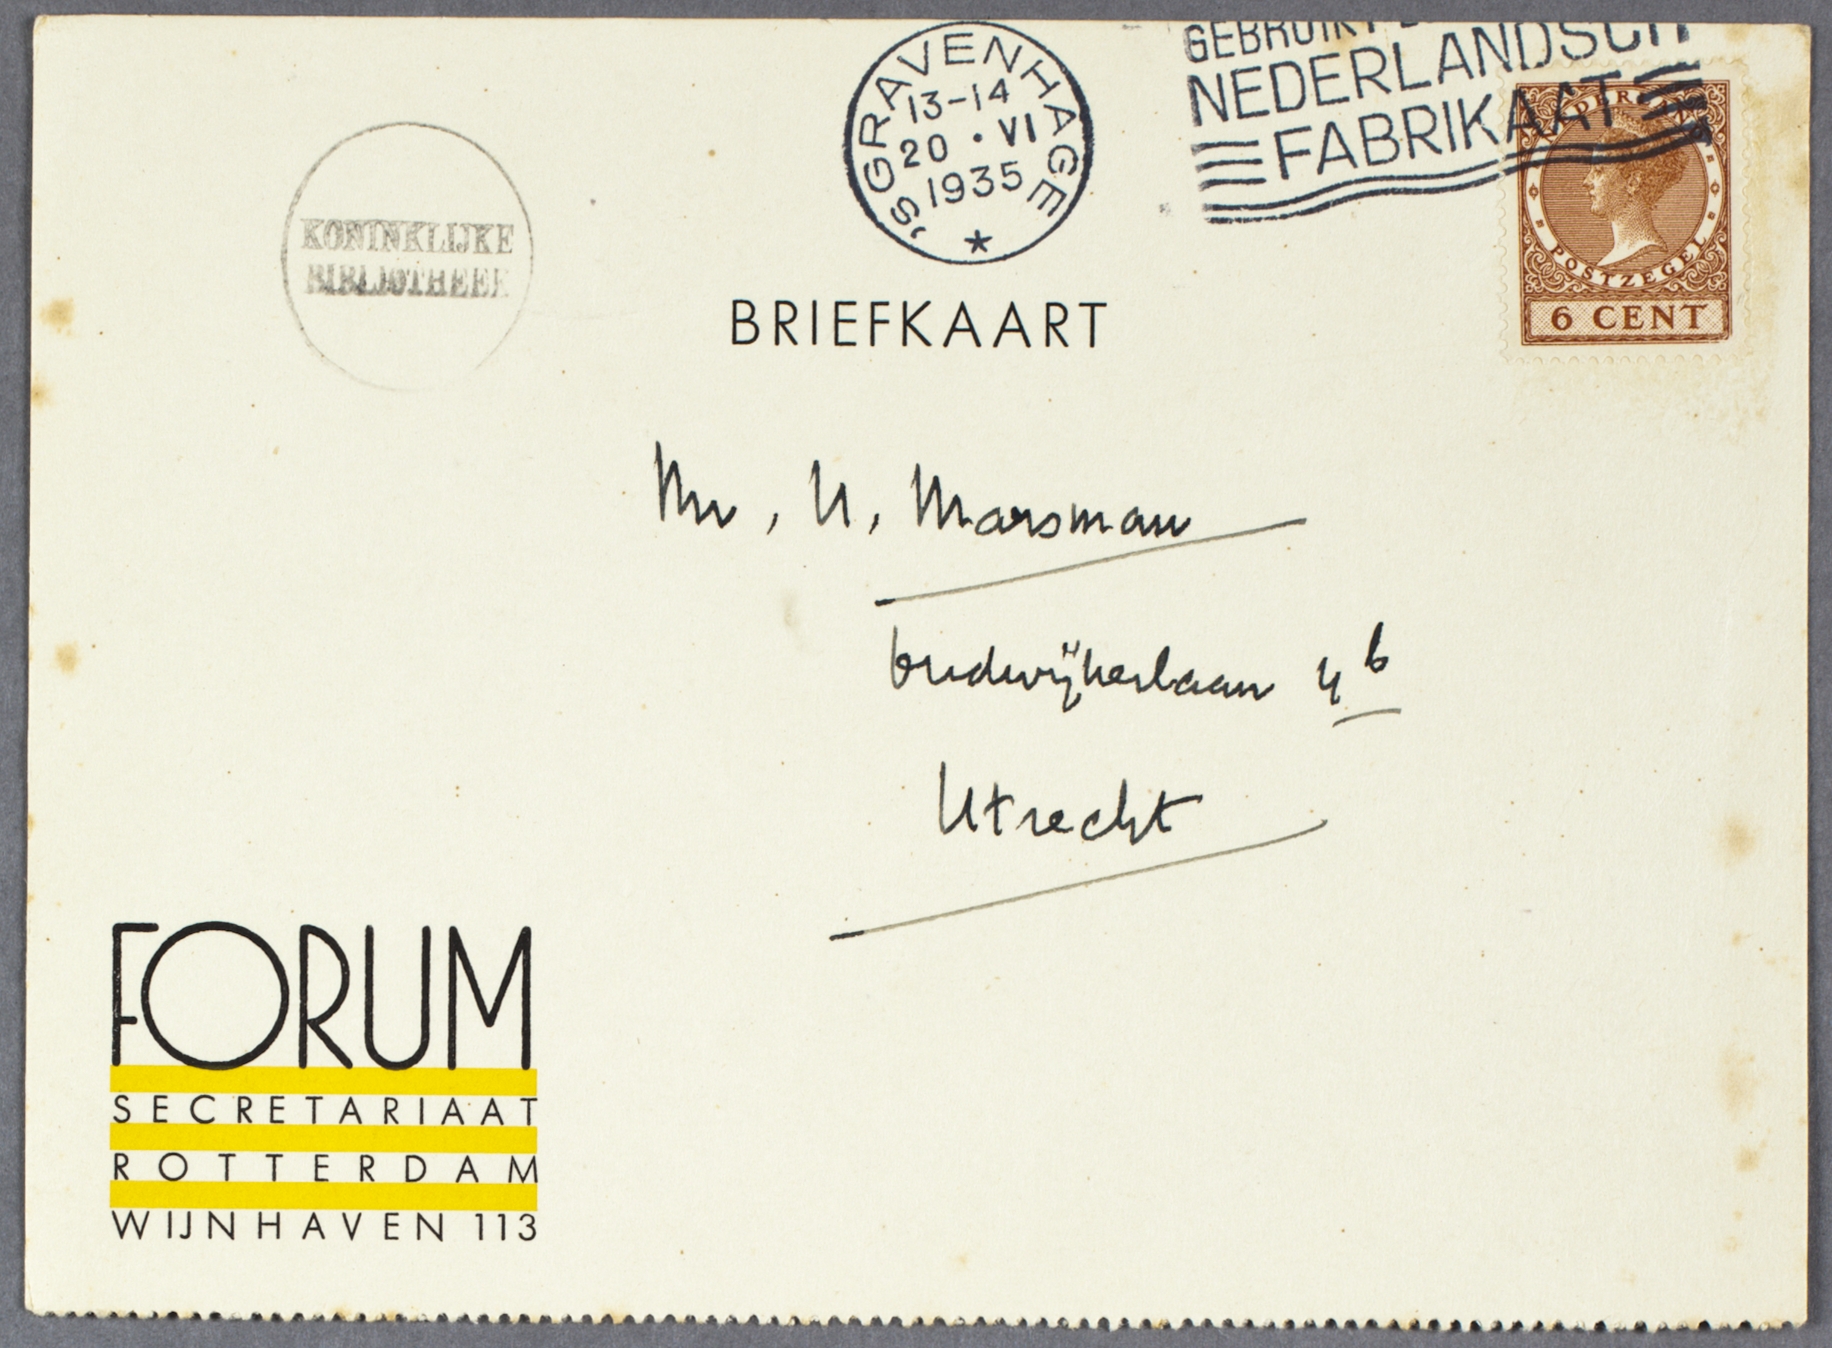 'S GRAVENHAGE
13-14
20 • VI
1935
GEBRUIKT
NEDERLANDSCH
FABRIKAAT
NEDERLAND
POSTZEGEL
6 CENT
KONINKLIJKE
BIBLIOTHEEK
BRIEFKAART
Mr, H, Marsman
Oudwijkerlaan 4b
Utrecht
FORUM
SECRETARIAAT
ROTTERDAM
WIJNHAVEN 113